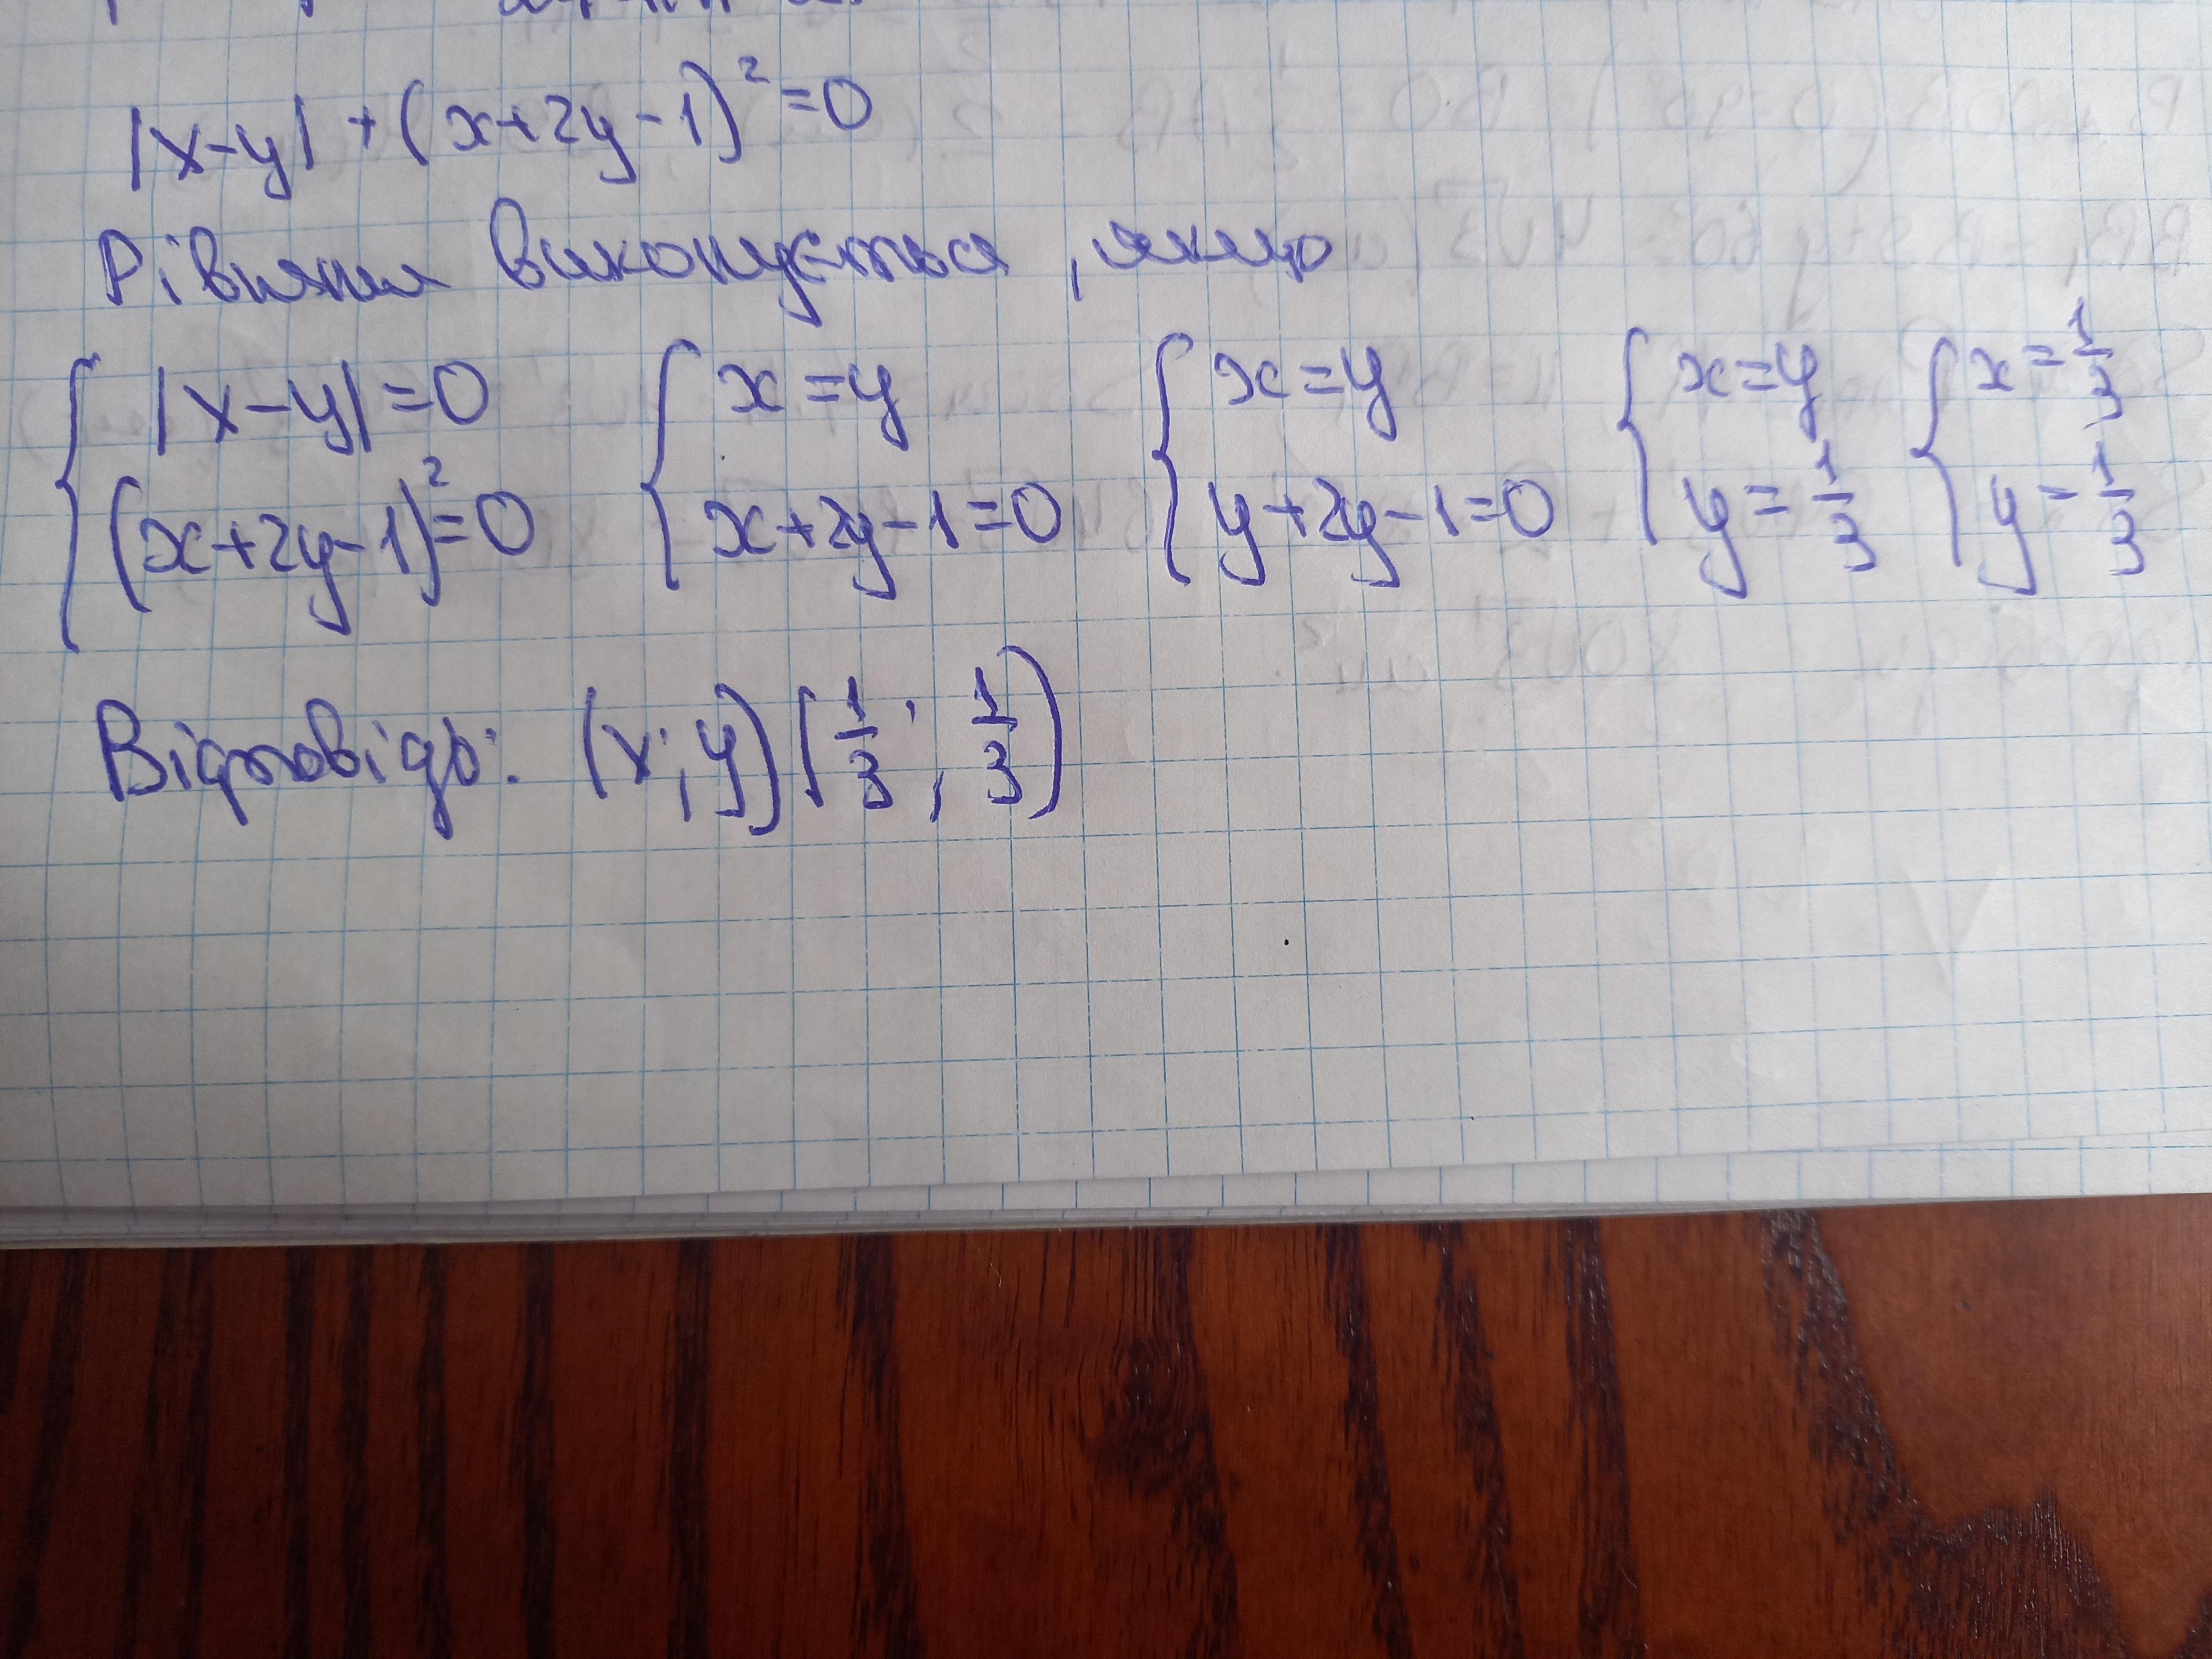 |x-y| + (x+2y-1)² = 0
Рівняння виконується, якщо
{ |x-y| = 0 { x = y { x = y { x = y { x = 1/3
(x+2y-1)² = 0 x+2y-1 = 0 y+2y-1 = 0 y = 1/3 y = 1/3
Відповідь: (x; y) (1/3 ; 1/3)